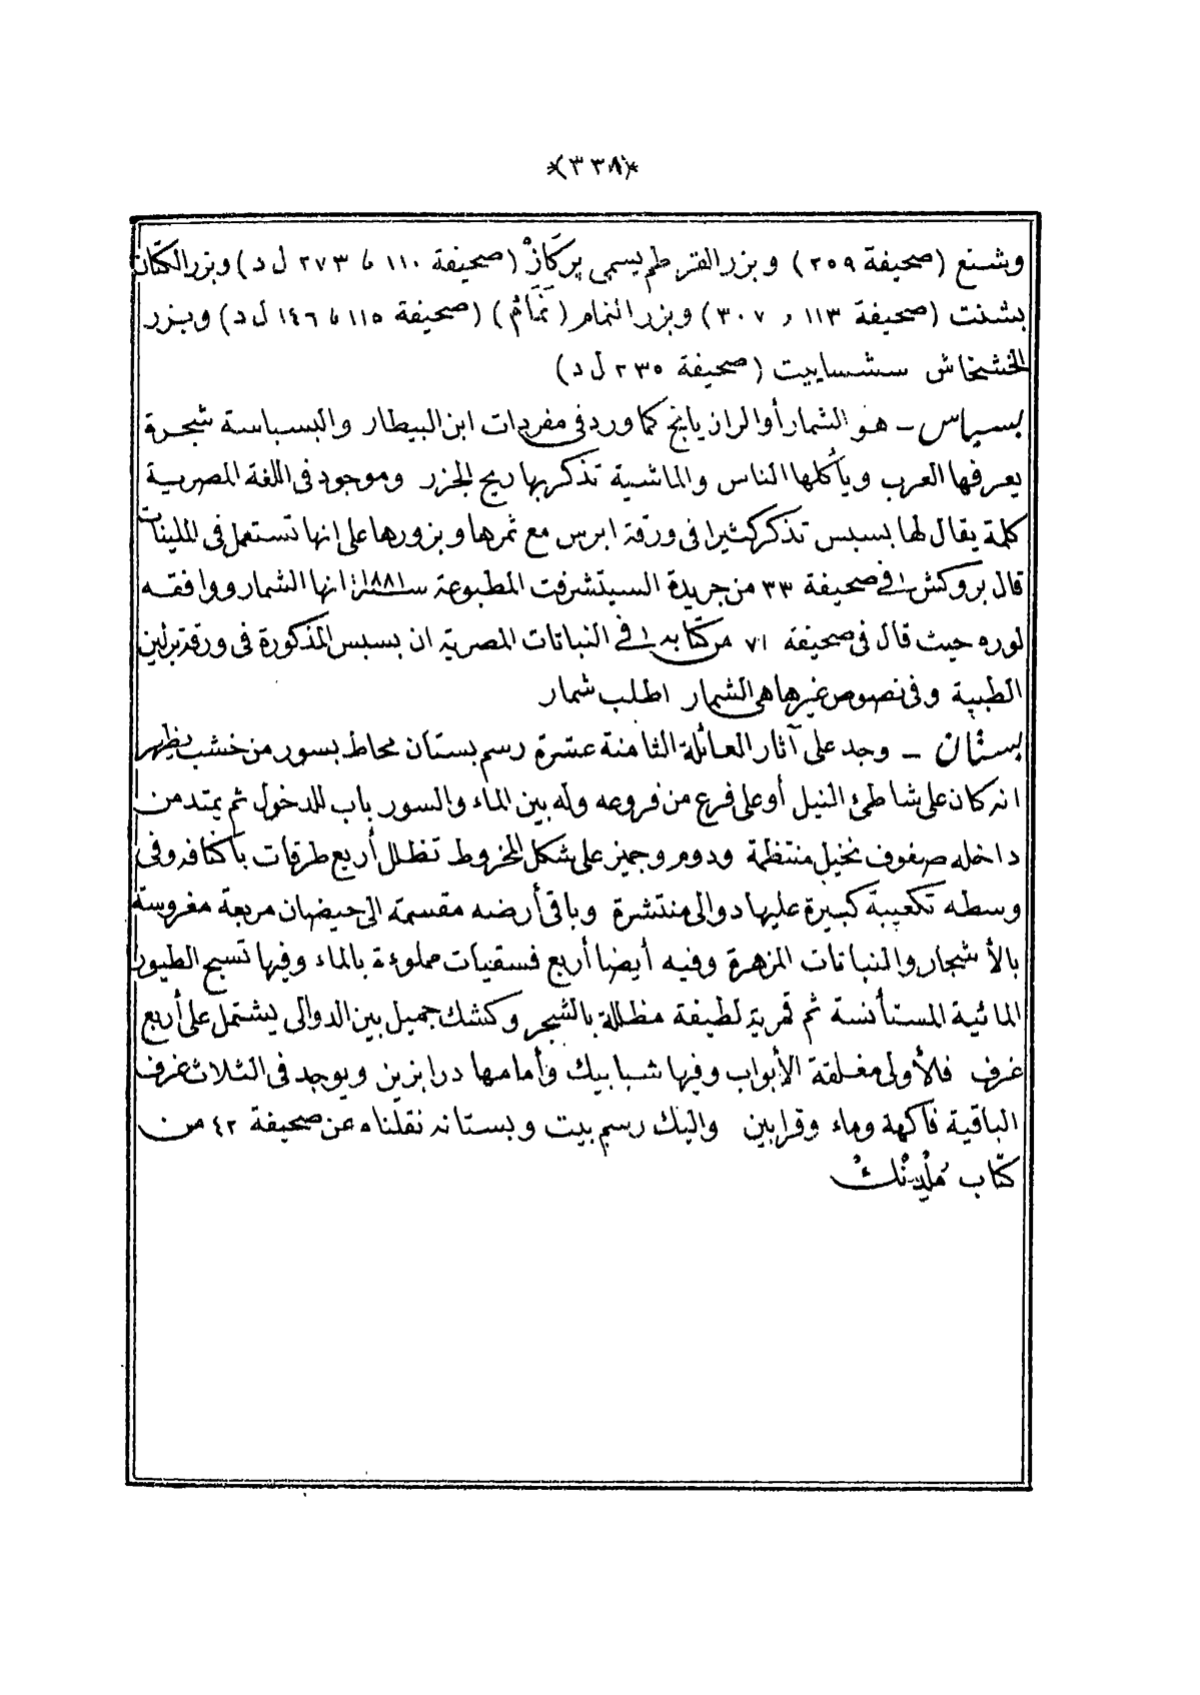 *(٣٣٨)*
وشنع (صحيفة ٢٥٩) وبزر القرطم يسمى پركاز (صحيفة ١١٠ ، ٢٧٣ ل د) وبزر الكتان
بشنت (صحيفة ١١٣ و ٣٠٧) وبزر النمام (نمام) (صحيفة ١١٥ ، ١٤٦ ل د) وبزر
الخشخاش سشسابيت (صحيفة ٢٣٥ ل د)
بسباس ــ هو الشمار أو الرازيانج كما ورد فى مفردات ابن البيطار والبسباسة شجرة
يعرفها العرب ويأكلها الناس والماشية تذكر بها ريح الجزر وموجود فى اللغة المصرية
كلمة يقال لها بسبس تذكر كثيرا فى ورقة ابرس مع ثمرها وبزورها على انها تستعمل فى الملينات
قال بروكش فى صحيفة ٣٣ من جريدة السيتشرفت المطبوعة سنة ١٨٨١ انها الشمار ووافقه
لوره حيث قال فى صحيفة ٧١ من كتابه فى النباتات المصرية ان بسبس المذكورة فى ورقة برلين
الطبية وفى نصوص غيرها هى الشمار اطلب شمار
بستان ــ وجد على آثار العائلة الثامنة عشرة رسم بستان محاط بسور من خشب يظهر
انه كان على شاطئ النيل أو على فرع من فروعه وله بين الماء والسور باب للدخول ثم يمتد من
داخله صفوف نخيل منتظمة ودوم وجميز على شكل المخروط تظلل أربع طرقات بأكنافه وفى
وسطه تكعيبة كبيرة عليها دوالى منتشرة وباقى أرضه مقسمة الى حيضان مربعة مغروسة
بالأشجار والنباتات المزهرة وفيه أيضا أربع فسقيات مملوءة بالماء وفيها تسبح الطيور
المائية المستأنسة ثم قمرية لطيفة مظللة بالشجر وكشك جميل بين الدوالى يشتمل على أربع
غرف فالأولى مغلقة الأبواب وفيها شبابيك وأمامها درابزين ويوجد فى الثلاث غرف
الباقية فاكهة وماء وقرابين واليك رسم بيت وبستانه نقلناه عن صحيفة ٤٢ من
كتاب ملدنك